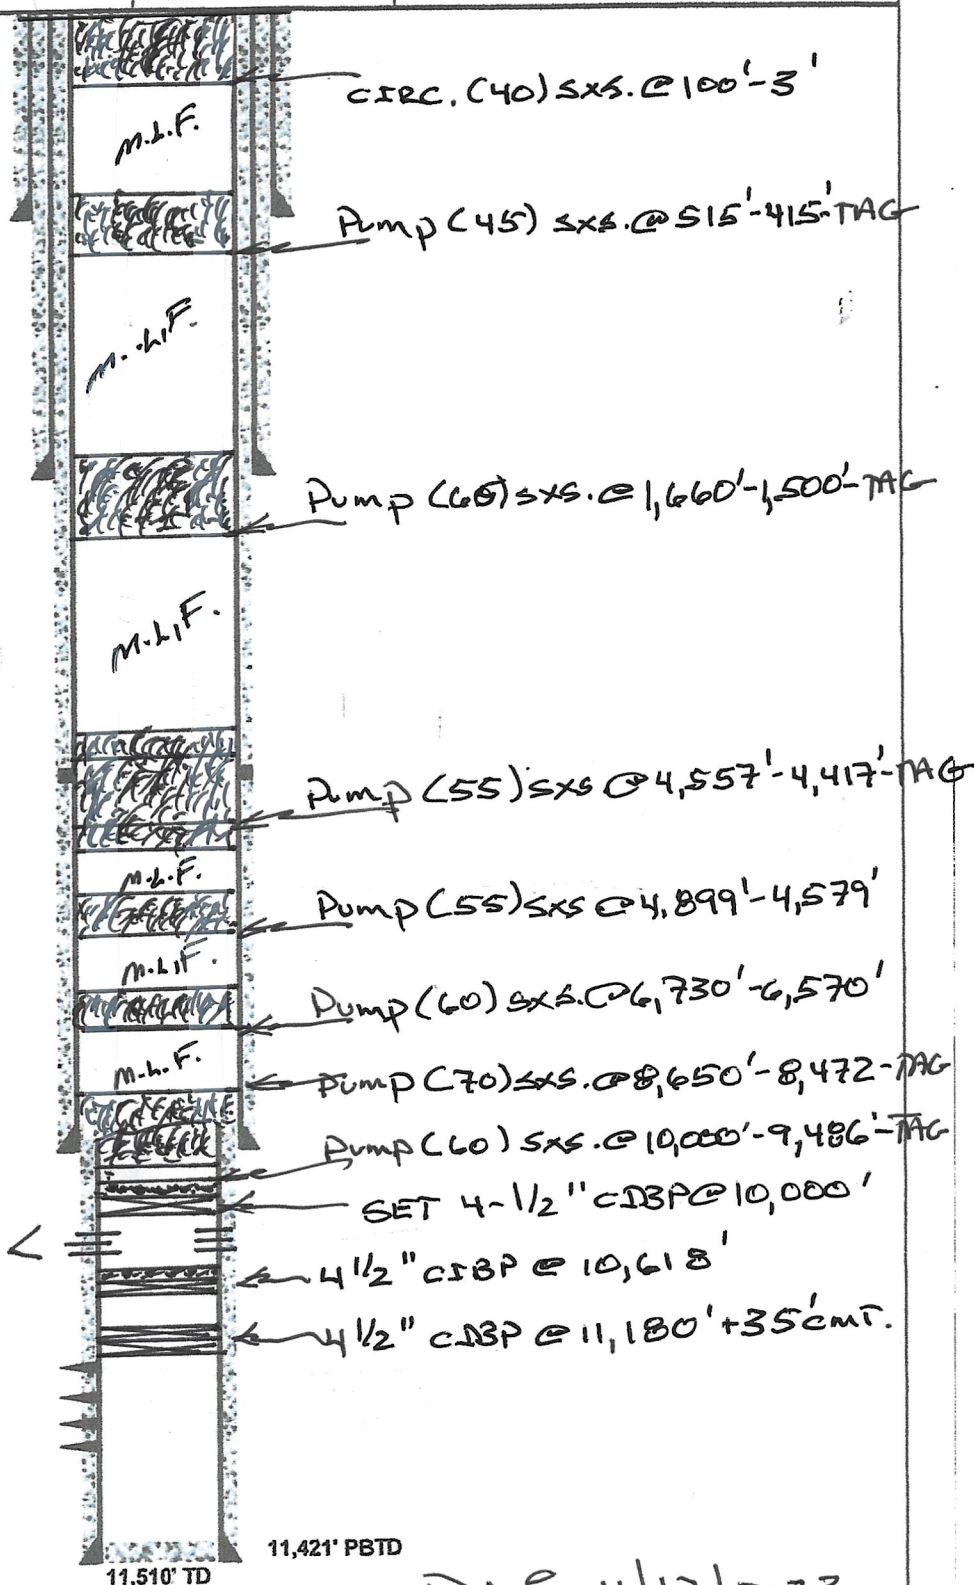 CIRC. (40) SXS. @ 100'-3'
M.L.F.
Pump (45) SXS. @ 515'-415'-TAG
M.L.F.
Pump (60) SXS. @ 1,660'-1,500'-TAG
M.L.F.
Pump (55) SXS @ 4,557'-4,417'-TAG
M.L.F.
Pump (55) SXS @ 4,899'-4,579'
M.L.F.
Pump (60) SXS. @ 6,730'-6,570'
M.L.F.
Pump (70) SXS. @ 8,650'-8,472-TAG
Pump (60) SXS. @ 10,000'-9,486'-TAG
SET 4-1/2" CIBP @ 10,000'
4 1/2" CIBP @ 10,618'
4 1/2" CIBP @ 11,180' +35' CMT.
11,421' PBTD
11,510' TD